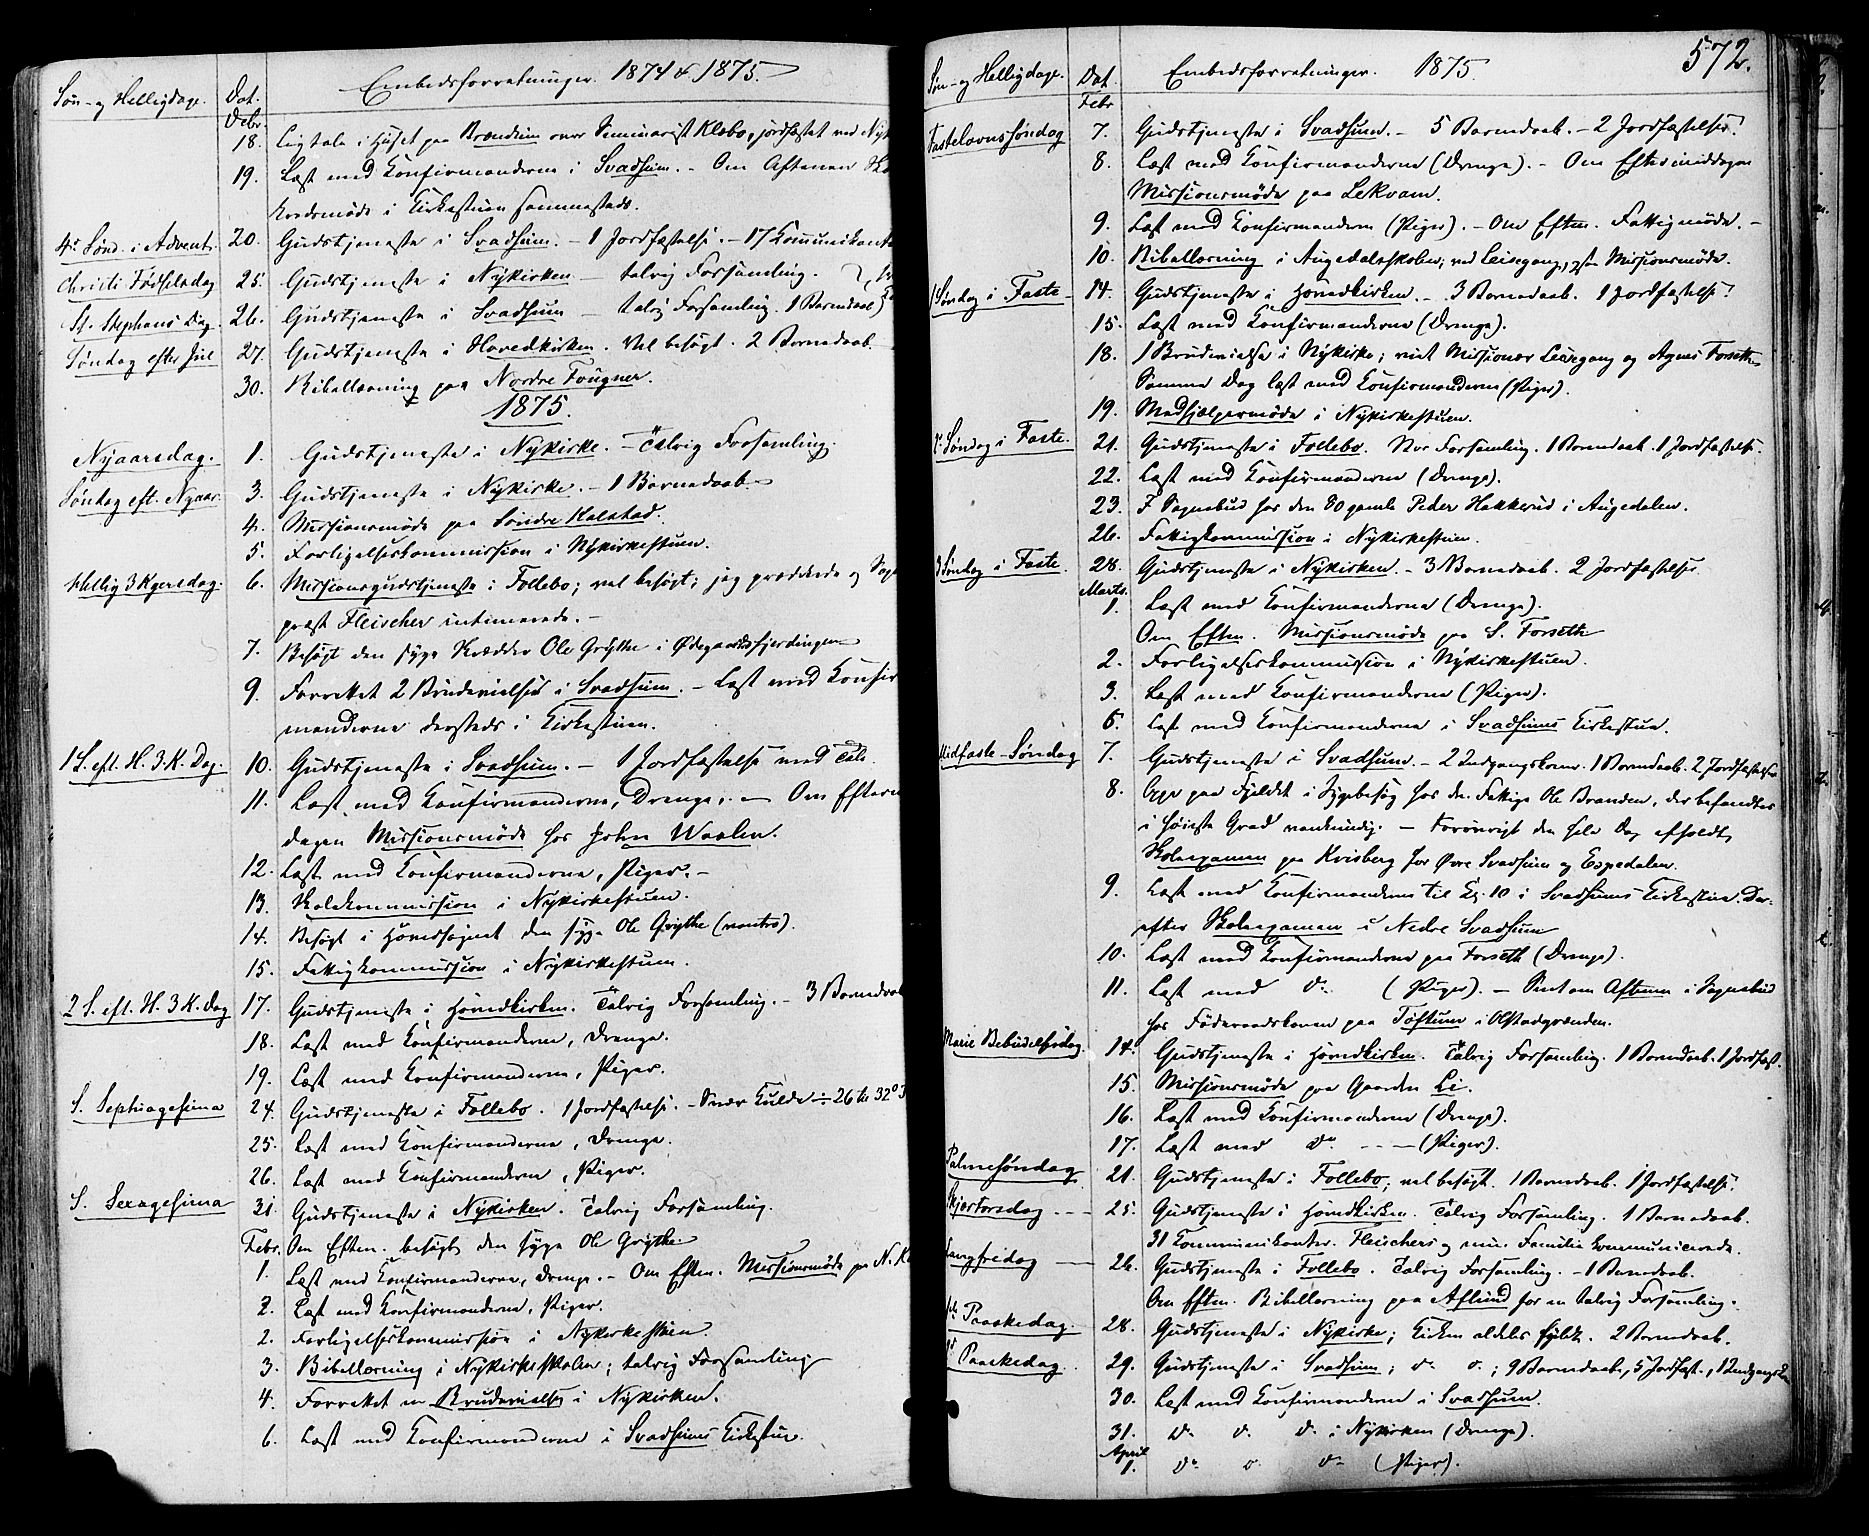 Søn- og Helligdage. Dat. Embedsforretninger. 1874 & 1875.
Debr.
18. Ligtale i Huset paa Brændum over Seminarist Klæbo, jordfæstet ved Nyk
19. Læst med Konfirmanderne i Svadsum. – Om Aftenen
kredsmøde i Kirkestuen sammesteds.
4de Sønd. i Advent. 20. Gudstjeneste i Svadsum. – 1 Jordfæstelse. – 17 Kommunikanter
Christi Fødselsdag 25. Gudstjeneste i Nykirken – talrig Forsamling.
St. Stephans Dag. 26. Gudstjeneste i Svadsum – talrig Forsamling. 1 Barnedaab
Søndag efter Jul 27. Gudstjeneste i Hovedkirken. Vel besøgt. 2 Barnedaab.
30. Bibellæsning paa Nordre Fougner.
1875.
Nyaarsdag. 1. Gudstjeneste i Nykirke. – Talrig Forsamling.
Søndag eft. Nyaar. 3. Gudstjeneste i Nykirke. – 1 Barnedaab. –
4. Missionsmøde paa Søndre Kalstad.
5. Forligelseskommission i Nykirkestuen.
Hellig 3 Kgersdag. 6. Missionsgudstjeneste i Follebo; vel besøgt; jeg prædikede og Sogne
præst Fleischer intimerede. –
7. Besøgt den syge Skrædder Ole Grytte i Ødegaardsfjerdingen
9. Forrettet 2 Brudevielser i Svadsum. – Læst med Konfir
manderne dersteds i Kirkestuen.
1 S. eft. H. 3 K. Dag. 10. Gudstjeneste i Svadsum. – 1 Jordfæstelse med Tale.
11. Læst med Konfirmanderne, Drenge. – Om Efterm
dagen Missionsmøde hos John Waalen.
12. Læst med Konfirmanderne, Piger. –
13. Skolekommission i Nykirkestuen.
14. Besøgt i Hovedsognet den syge Ole Grytte
15. Fattigkommission i Nykirkestuen.
2 S. eft. H. 3 K. Dag 17. Gudstjeneste i Hovedkirken. Talrig Forsamling. – 3 Barnedaab
18. Læst med Konfirmanderne, Drenge.
19. Læst med Konfirmanderne, Piger.
S. Septuagesima 24. Gudstjeneste i Follebo. 1 Jordfæstelse. – Svær Kulde ÷ 26 til 32°
25. Læst med Konfirmanderne, Drenge.
26. Læst med Konfirmanderne, Piger.
S. Sexagesima 31. Gudstjeneste i Nykirken. Talrig Forsamling.
Febr. Om Eftm. besøgt den syge Ole Grytte.
1. Læst med Konfirmanderne, Drenge. – Om Eftm. Missionsmøde paa N.
2. Læst med Konfirmanderne, Piger.
2. Forligelseskommission i Nykirkestuen.
3. Bibellæsning i Nykirkeskolen; talrig Forsamling
4. Forrettet en Brudevielse i Nykirken.
6. Læst med Konfirmanderne i Svadsums Kirkestue.
572.
Søn- og Helligdage. Dat. Embedsforretninger. 1875.
Febr
Fastelavnssøndag 7. Gudstjeneste i Svadsum. – 5 Barnedaab. – 2 Jordfæstelser.
8. Læst med Konfirmanderne (Drenge). – Om Eftermiddagen
Missionsmøde paa Lekvam.
9. Læst med Konfirmanderne (Piger). – Om Eftm. Fattigmøde. –
10. Bibellæsning i Augedalsskolen; ved Leirgang, Missionsmøde.
1 Søndag i Faste 14. Gudstjeneste i Hovedkirken. – 3 Barnedaab. 1 Jordfæstelse.
15. Læst med Konfirmanderne (Drenge).
18. 1 Brudevielse i Nykirke; viet Missionær Leirgang og Agnes Forseth
Samme Dag læst med Konfirmanderne (Piger).
19. Medhjælpermøde i Nykirkestuen.
2. Søndag i Faste. 21. Gudstjeneste i Follebo. Stor Forsamling. 1 Barnedaab. 1 Jordfæstelse.
22. Læst med Konfirmanderne (Drenge).
23. I Sognebud hos den 80 gamle Peder Hakkerud i Augedalen.
26. Fattigkommission i Nykirkestuen.
3 Søndag i Faste. 28. Gudstjeneste i Nykirken. – 3 Barnedaab. 2 Jordfæstelser
Marts.
1. Læst med Konfirmanderne (Drenge).
Om Eftm. Missionsmøde paa S. Forseth
2. Forligelseskommission i Nykirkestuen.
3. Læst med Konfirmanderne (Piger).
5. Læst med Konfirmanderne i Svadsums Kirkestue.
Midfaste-Søndag 7. Gudstjeneste i Svadsum. – 2 Indgangskoner. 1 Barnedaab. 2 Jordfæstelser
8. Oppe paa Fjeldet i Sygebesøg hos den Fattige Ole Branden, der befandtes
i høieste Grad vankundig. – Forøvrigt den hele Dag afholdt
Skoleexamen paa Kvisberg for Øvre Svadsum og Espedalen.
9. Læst med Konfirmanderne til Kl. 10 i Svadsums Kirkestue. Der-
efter Skoleexamen i Nedre Svadsum
10. Læst med Konfirmanderne paa Forseth (Drenge).
11. Læst med Do (Piger). – Sent om Aftenen i Sognebud
hos Føderaadskonen paa Toftum i Olstadgrænden.
Marie Bebudelsesdag. 14. Gudstjeneste i Hovedkirken. Talrig Forsamling. 1 Barnedaab. 1 Jordfæst.
15. Missionsmøde paa Gaarden Li.
16. Læst med Konfirmanderne (Drenge).
17. Læst med Do – – – (Piger).
Palmesøndag 21. Gudstjeneste i Follebo; vel besøgt. 1 Barnedaab. 1 Jordfæstelse.
Skjærtorsdag – – 25. Gudstjeneste i Hovedkirken. Talrig Forsamling. 1 Barnedaab.
31 Kommunikanter. Fleischers og min Familie kommunicerede.
Langfredag – 26. Gudstjeneste i Follebo. Talrig Forsamling. – 1 Barnedaab.
Om Eftm. Bibellæsning paa Aslund for en talrig Forsamling.
1ste Paaskedag. 28. Gudstjeneste i Nykirke; Kirken aldeles fyldt. 2 Barnedaab.
Paaskedag. 29. Gudstjeneste i Svadsum; do do; 9 Barnedaab, 5 Jordfæst., 1 Indgangsk
30. Læst med Konfirmanderne i Svadsum.
31. Do Do Do i Nykirken (Drenge).
April
1. Do Do Do (Piger).